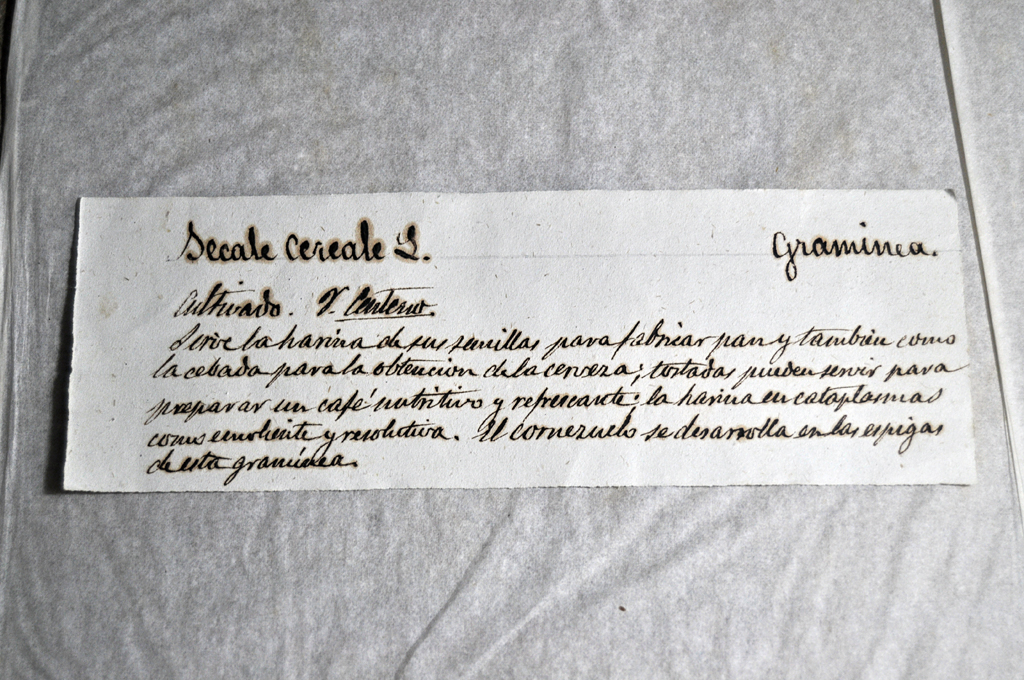 Secale cereale L. Graminea.
Cultivado. V. Centeno.
Sirve la harina de sus semillas para fabricar pan y tambien como
la cebada para la obtencion de la cerveza; tostadas pueden servir para
preparar un café nutritivo y refrescante; la harina en cataplasmas
como emoliente y resolutiva. El cornezuelo se desarrolla en las espigas
de esta gramínea.